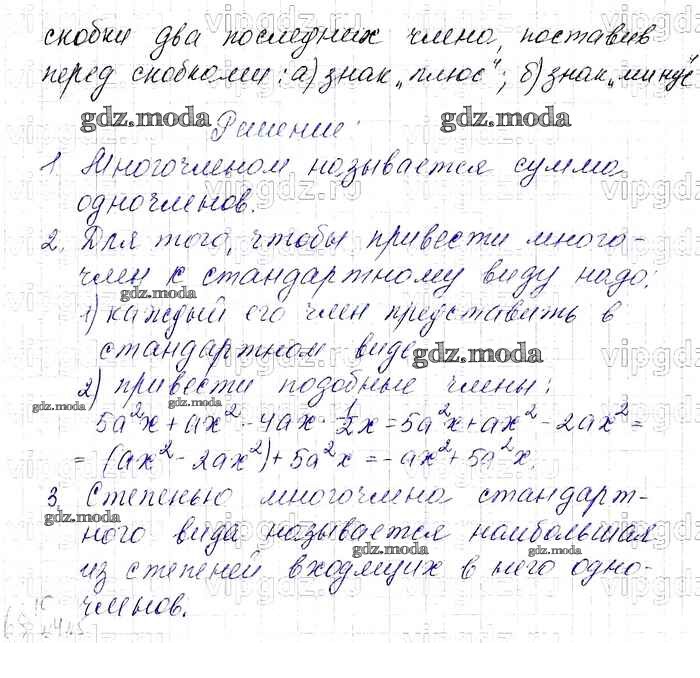 скобки два последних члена, поставив
перед скобками: а) знак „плюс“; б) знак „минус“
gdz.moda
Решение:
1. Многочленом называется сумма
одночленов.
2. Для того, чтобы привести много-
член к стандартному виду надо:
gdz.moda
1) каждый его член представить в
стандартном виде
gdz.moda
2) привести подобные члены;
gdz.moda
5a²x + ax² - 4ax · 1/2 x = 5a²x + ax² - 2ax² =
= (ax² - 2ax²) + 5a²x = -ax² + 5a²x.
3. Степенью многочлена стандарт-
gdz.moda
ного вида называется наибольшая
gdz.moda
из степеней входящих в него одно-
членов.
vipgdz.ru